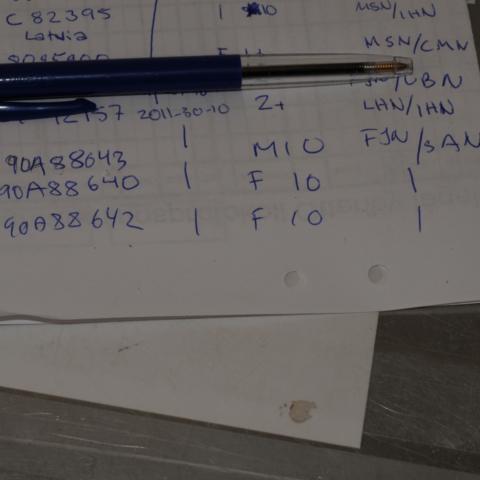 C 82395 | 10 MSN/IHN
Latvia
MSN/CMN
2011-30-10 2+ LHN/IHN
90A88643 | M10 FJN/SAN
90A88640 | F 10 |
90A88642 | F 10 |